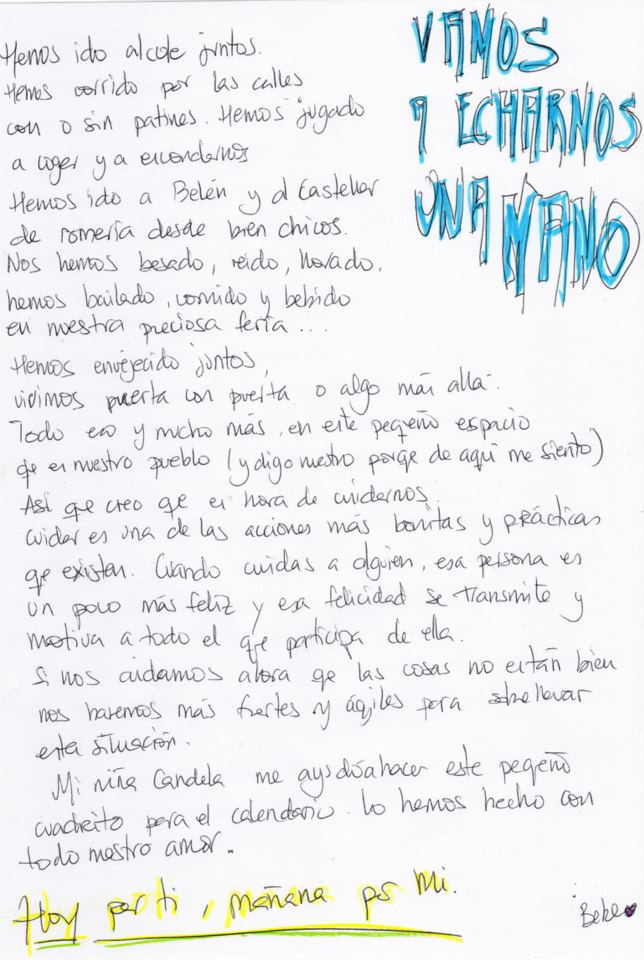 VAMOS
A ECHARNOS
UNA MANO
Hemos ido alcole juntos.
Hemos corrido por las calles
con o sin patines. Hemos jugado
a coger y a escondernos
Hemos ido a Belén y al Castellar
de romería desde bien chicos.
Nos hemos besado, reído, llorado,
hemos bailado, comido y bebido
en nuestra preciosa feria...
Hemos envejecido juntos,
vivimos puerta con puerta o algo más allá.
Todo eso y mucho más, en este pequeño espacio
qe es nuestro pueblo (y digo nuestro porqe de aquí me siento)
Así qe creo qe es hora de cuidarnos.
cuidar es una de las acciones más bonitas y prácticas
qe existen. Cuando cuidas a alguien, esa persona es
un poco más feliz y esa felicidad se transmite y
motiva a todo el qe participa de ella.
Si nos cuidamos ahora qe las cosas no están bien
nos haremos más fuertes y ágiles para sobrellevar
esta situación.
Mi niña Candela me ayudó a hacer este pequeño
cuadrito para el calendario. Lo hemos hecho con
todo nuestro amor..
Hoy por ti, mañana por mi.
Bebe